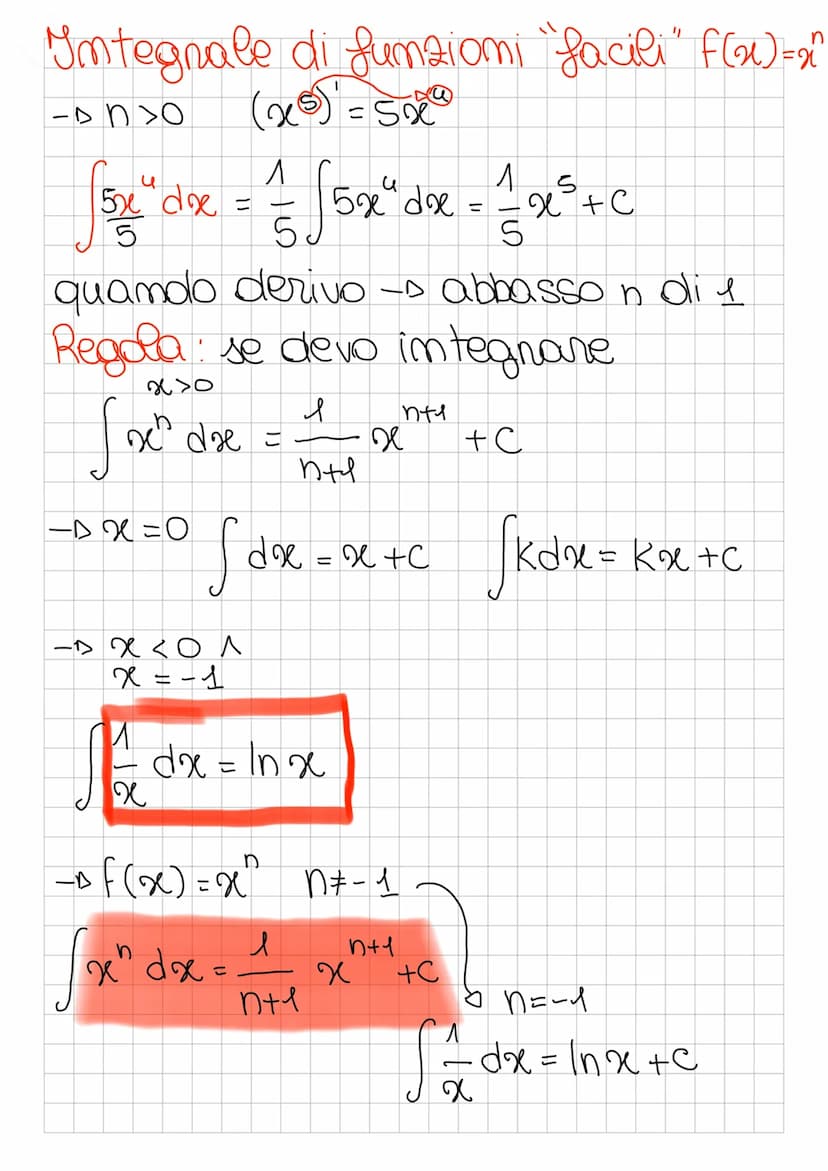 Integrale di funzioni "facili" f(x)=xⁿ
→ n>0 (x⁵)' = 5x⁴
∫ 5x⁴/5 dx = 1/5 ∫ 5x⁴ dx = 1/5 x⁵ + c
quando derivo → abbasso n di 1
Regola: se devo integrare
x>0
∫ xⁿ dx = 1/(n+1) xⁿ⁺¹ + c
→ x=0 ∫ dx = x + c ∫ k dx = kx + c
→ x<0 ∧
x = -1
∫ 1/x dx = ln x
→ f(x) = xⁿ n≠-1
∫ xⁿ dx = 1/(n+1) xⁿ⁺¹ + c
n=-1
∫ 1/x dx = ln x + c